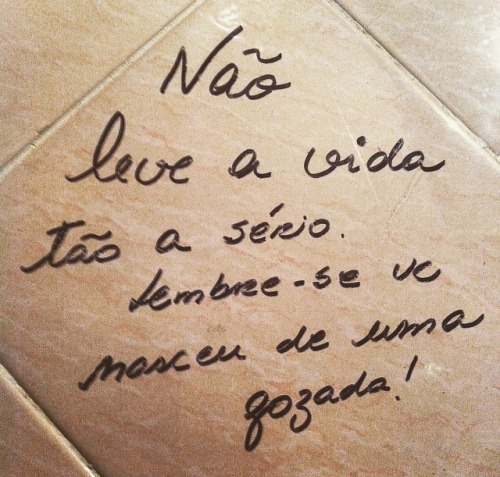 Não
leve a vida
tão a sério.
Lembre-se vc
nasceu de uma
gozada!